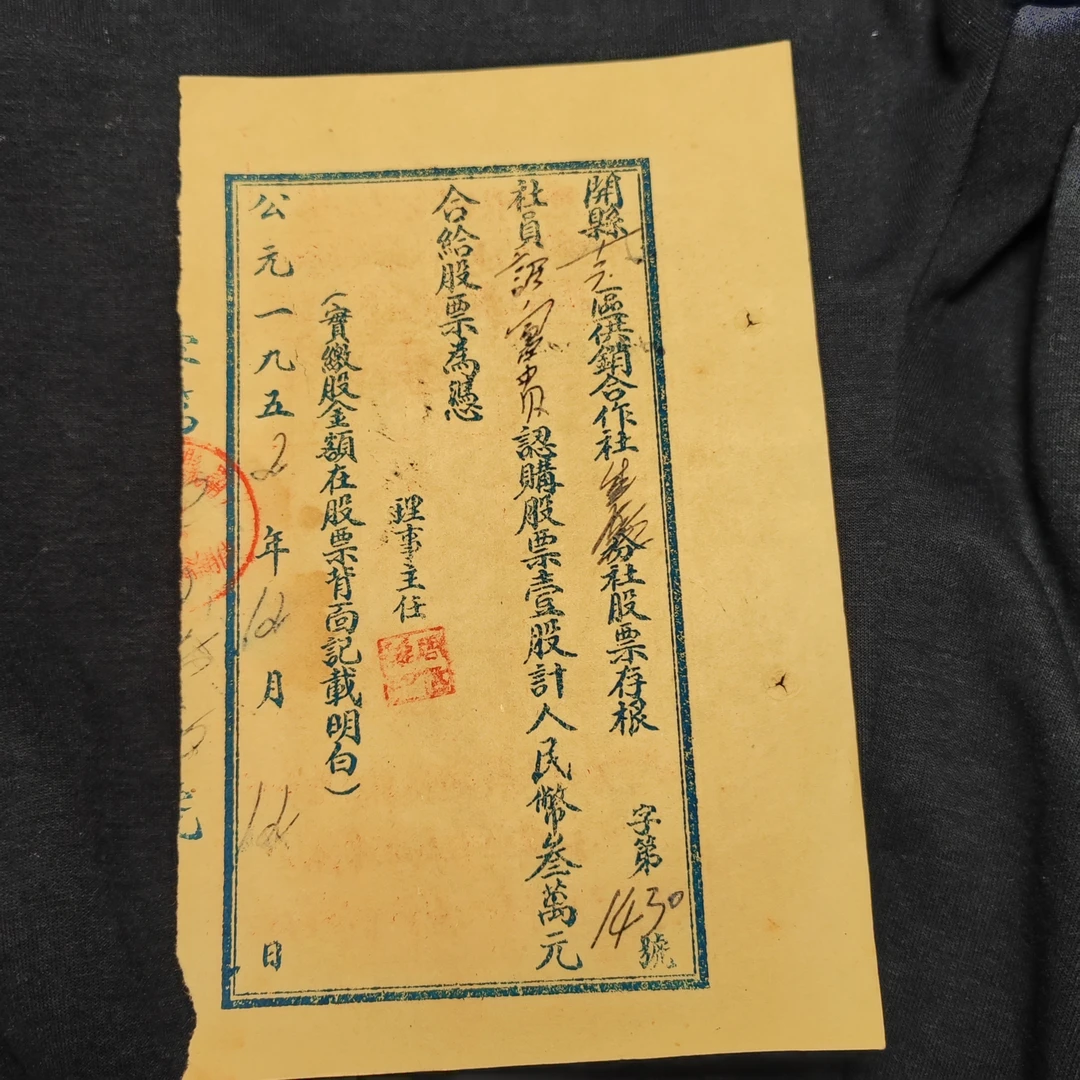 開縣十二區供銷合作社分社股票存根
字第1430號
社員富貴認購股票壹股計人民幣叁萬元
合給股票為憑
理事主任
（實繳股金額在股票背面記載明白）
公元一九五2年12月12日